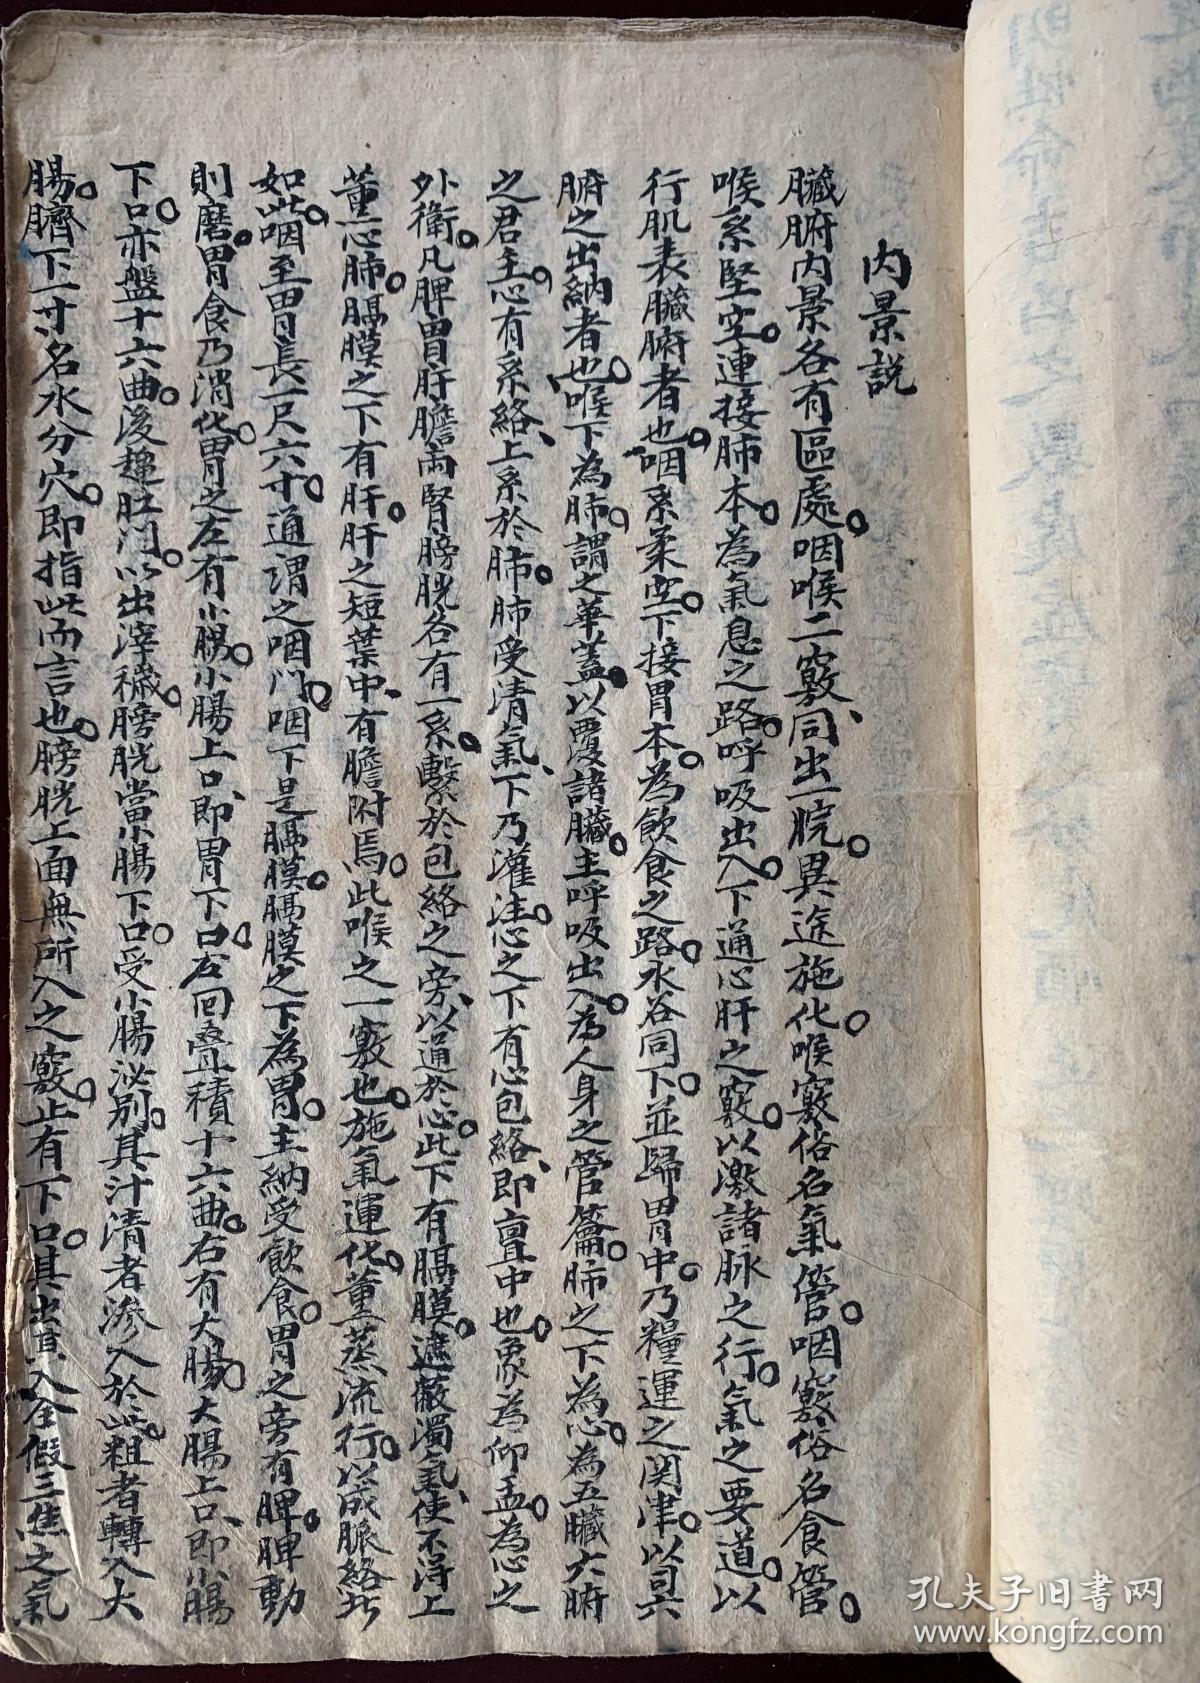 內景説
臟腑内景各有區處。咽喉二竅、同出一脘。異途施化。喉竅俗名氣管。咽竅俗名食管。
喉系堅空。連接肺本。為氣息之路。呼吸出入。下通心肝之竅。以激諸脉之行。氣之要道。以
行肌表臟腑者也。咽系柔空。下接胃本。為飲食之路。水谷同下。並歸胃中。乃糧運之関津。以司六
腑之出納者也。喉下為肺。謂之華蓋。以覆諸臟。主呼吸出入。為人身之管籥。肺之下為心。為五臟六腑
之君主。心有系絡、上系於肺。肺受清氣、下乃灌注。心之下有心包絡、即亶中也。象為仰盂。為心之
外衛。凡脾胃肝膽兩腎膀胱各有一系。繫於包絡之旁、以通於心。此下有膈膜。遮蔽濁氣、使不得上
薰心肺。膈膜之下有肝。肝之短葉中、有膽附焉。此喉之一竅也。施氣運化。薰蒸流行。以成脈絡此
如此。咽至胃長一尺六寸。通謂之咽门。咽下是膈膜。膈膜之下為胃。主納受飲食。胃之旁有脾。脾動
則磨。胃食乃消化。胃之左有小腸。小腸上口、即胃下口。左回疊積十六曲。右有大腸。大腸上口、即小腸
下口。亦盤十六曲。後趨肛门。以出滓穢。膀胱當小腸下口。受小腸泌別。其汁清者滲入於此。粗者轉入大
腸。臍下一寸名水分穴。即指此而言也。膀胱上面無所入之竅。止有下口。其出入全假三焦之氣
孔夫子旧书网
www.kongfz.com